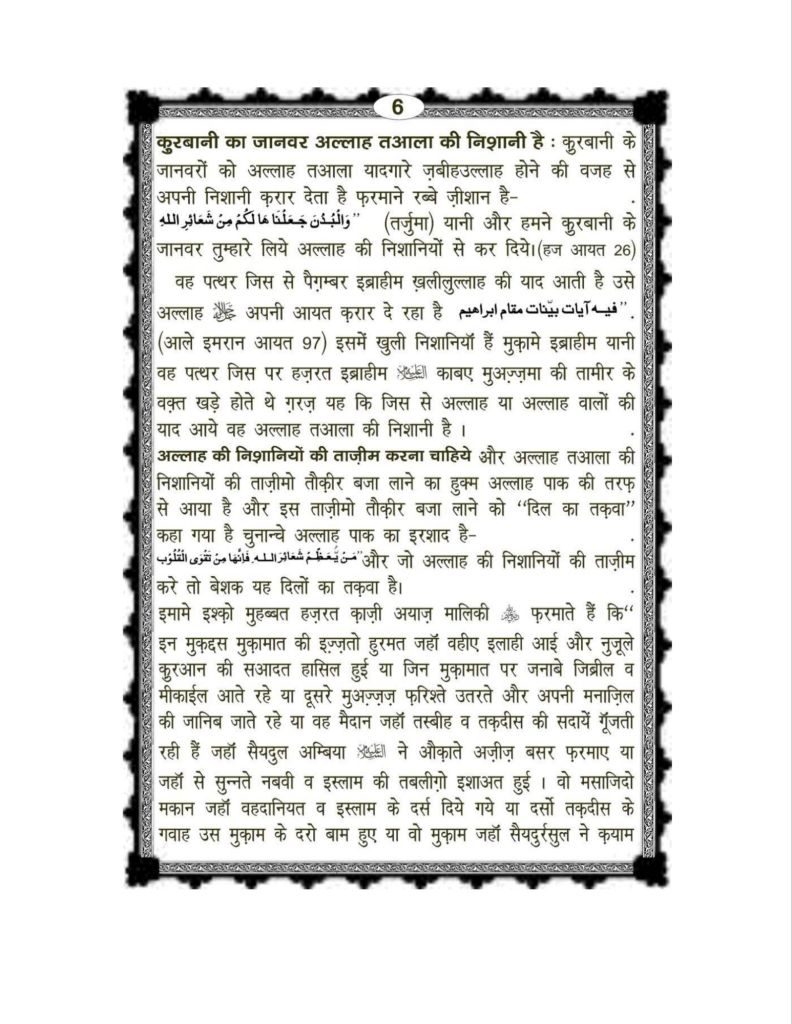 6
क़ुरबानी का जानवर अल्लाह तआला की निशानी है : क़ुरबानी के
जानवरों को अल्लाह तआला यादगारे ज़बीहउल्लाह होने की वजह से
अपनी निशानी क़रार देता है फ़रमाने रब्बे ज़ीशान है-
"وَالْبُدْنَ جَعَلْنَا هَا لَكُمْ مِنْ شَعَائِرِ اللهِ (तर्जुमा) यानी और हमने क़ुरबानी के
जानवर तुम्हारे लिये अल्लाह की निशानियों से कर दिये।(हज आयत 26)
वह पत्थर जिस से पैग़म्बर इब्राहीम ख़लीलुल्लाह की याद आती है उसे
अल्लाह ﷻ अपनी आयत क़रार दे रहा है فيه آيات بيّنات مقام ابراهيم".
(आले इमरान आयत 97) इसमें खुली निशानियाँ हैं मुक़ामे इब्राहीम यानी
वह पत्थर जिस पर हज़रत इब्राहीम काबए मुअज़्ज़मा की तामीर के
वक़्त खड़े होते थे ग़रज़ यह कि जिस से अल्लाह या अल्लाह वालों की
याद आये वह अल्लाह तआला की निशानी है ।
अल्लाह की निशानियों की ताज़ीम करना चाहिये और अल्लाह तआला की
निशानियों की ताज़ीमो तौक़ीर बजा लाने का हुक्म अल्लाह पाक की तरफ़
से आया है और इस ताज़ीमो तौक़ीर बजा लाने को ‘‘दिल का तक़वा’’
कहा गया है चुनान्चे अल्लाह पाक का इरशाद है-
"مَنْ يُّعَظِّمْ شَعَائِرَ اللهِ فَإِنَّهَا مِنْ تَقْوَى الْقُلُوْبِ और जो अल्लाह की निशानियों की ताज़ीम
करे तो बेशक यह दिलों का तक़वा है।
इमामे इश्क़ो मुहब्बत हज़रत क़ाज़ी अयाज़ मालिकी फ़रमाते हैं कि‘‘
इन मुक़द्दस मुक़ामात की इज़्ज़तो हुरमत जहाँ वहीए इलाही आई और नुज़ूले
क़ुरआन की सआदत हासिल हुई या जिन मुक़ामात पर जनाबे जिब्रील व
मीकाईल आते रहे या दूसरे मुअज़्ज़ज़ फ़रिश्ते उतरते और अपनी मनाज़िल
की जानिब जाते रहे या वह मैदान जहाँ तस्बीह व तक़दीस की सदायें गूँजती
रही हैं जहाँ सैयदुल अम्बिया ने औक़ाते अज़ीज़ बसर फ़रमाए या
जहाँ से सुन्नते नबवी व इस्लाम की तबलीग़ो इशाअत हुई । वो मसाजिदो
मकान जहाँ वहदानियत व इस्लाम के दर्स दिये गये या दर्सो तक़दीस के
गवाह उस मुक़ाम के दरो बाम हुए या वो मुक़ाम जहाँ सैयदुर्रसुल ने क़याम